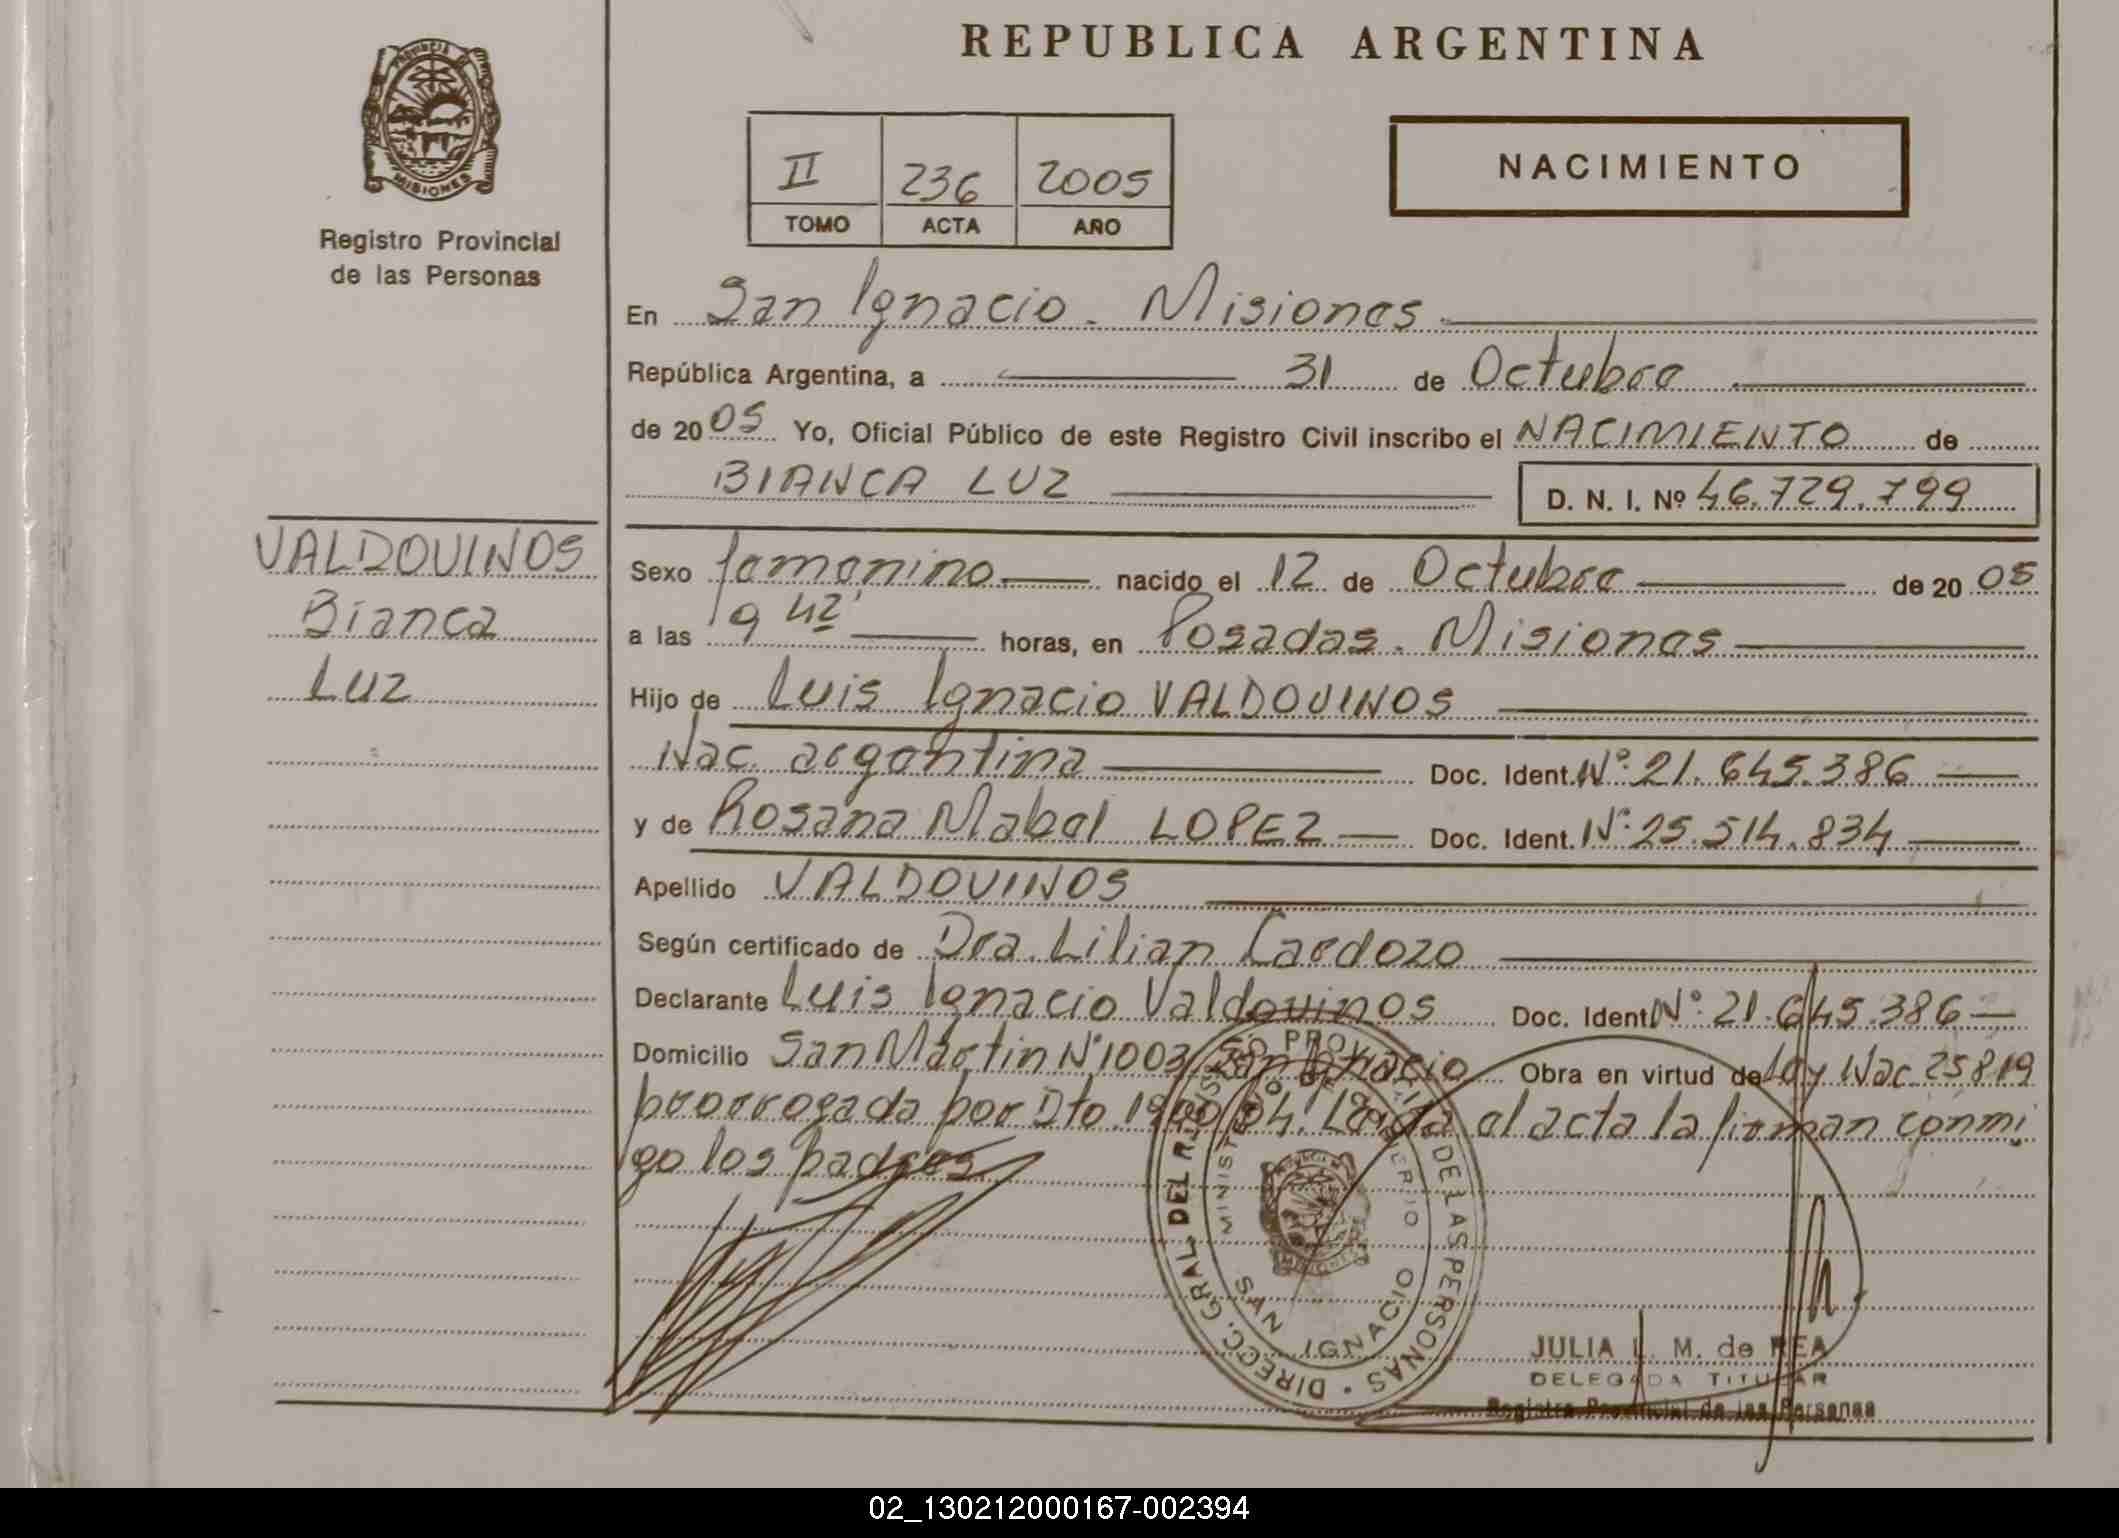 REPUBLICA ARGENTINA
PROVINCIA DE
MISIONES
Registro Provincial
de las Personas
II 236 2005
TOMO ACTA AÑO
NACIMIENTO
En San Ignacio - Misiones
República Argentina, a 31 de Octubre
de 2005 Yo, Oficial Público de este Registro Civil inscribo el NACIMIENTO de
BIANCA LUZ D. N. I. Nº 46.729.799
VALDOVINOS
Bianca
Luz
Sexo femenino nacido el 12 de Octubre de 2005
a las 9 42' horas, en Posadas - Misiones
Hijo de Luis Ignacio VALDOVINOS
Nac. argentina Doc. Ident. Nº 21.645.386
y de Rosana Mabel LOPEZ Doc. Ident. Nº 25.514.834
Apellido VALDOVINOS
Según certificado de Dra. Lilian Cardozo
Declarante Luis Ignacio Valdovinos Doc. Ident. Nº 21.645.386
Domicilio San Martin Nº 1003 San Ignacio Obra en virtud de Ley Nac. 25819
prorrogada por Dto. 1900/04. Leída el acta la firman conmi
go los padres
DIRECC. GRAL. DEL REGISTRO PROVINCIAL DE LAS PERSONAS
MINISTERIO DE GOBIERNO
SAN IGNACIO
MISIONES
JULIA L. M. de REA
DELEGADA TITULAR
Registro Provincial de las Personas
02_130212000167-002394